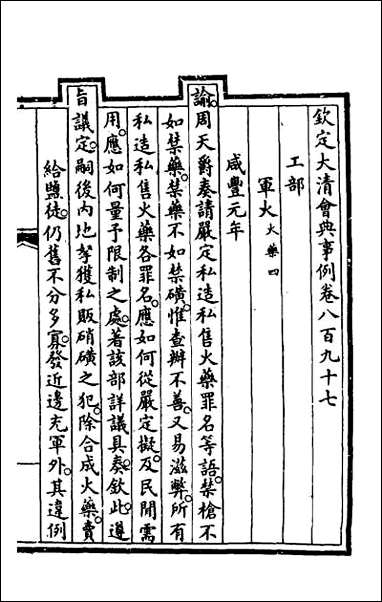 欽定大清會典事例卷八百九十七
工部
軍火火藥四
咸豐元年
諭周天爵奏請嚴定私造私售火藥罪名等語禁槍不
如禁藥禁藥不如禁磺惟查辦不善又易滋弊所有
私造私售火藥各罪名應如何從嚴定擬及民閒需
用應如何量予限制之處著該部詳議具奏欽此遵
旨議定嗣後內地拏獲私販硝磺之犯除合成火藥賣
給鹽徒仍舊不分多寡發近邊充軍外其違例